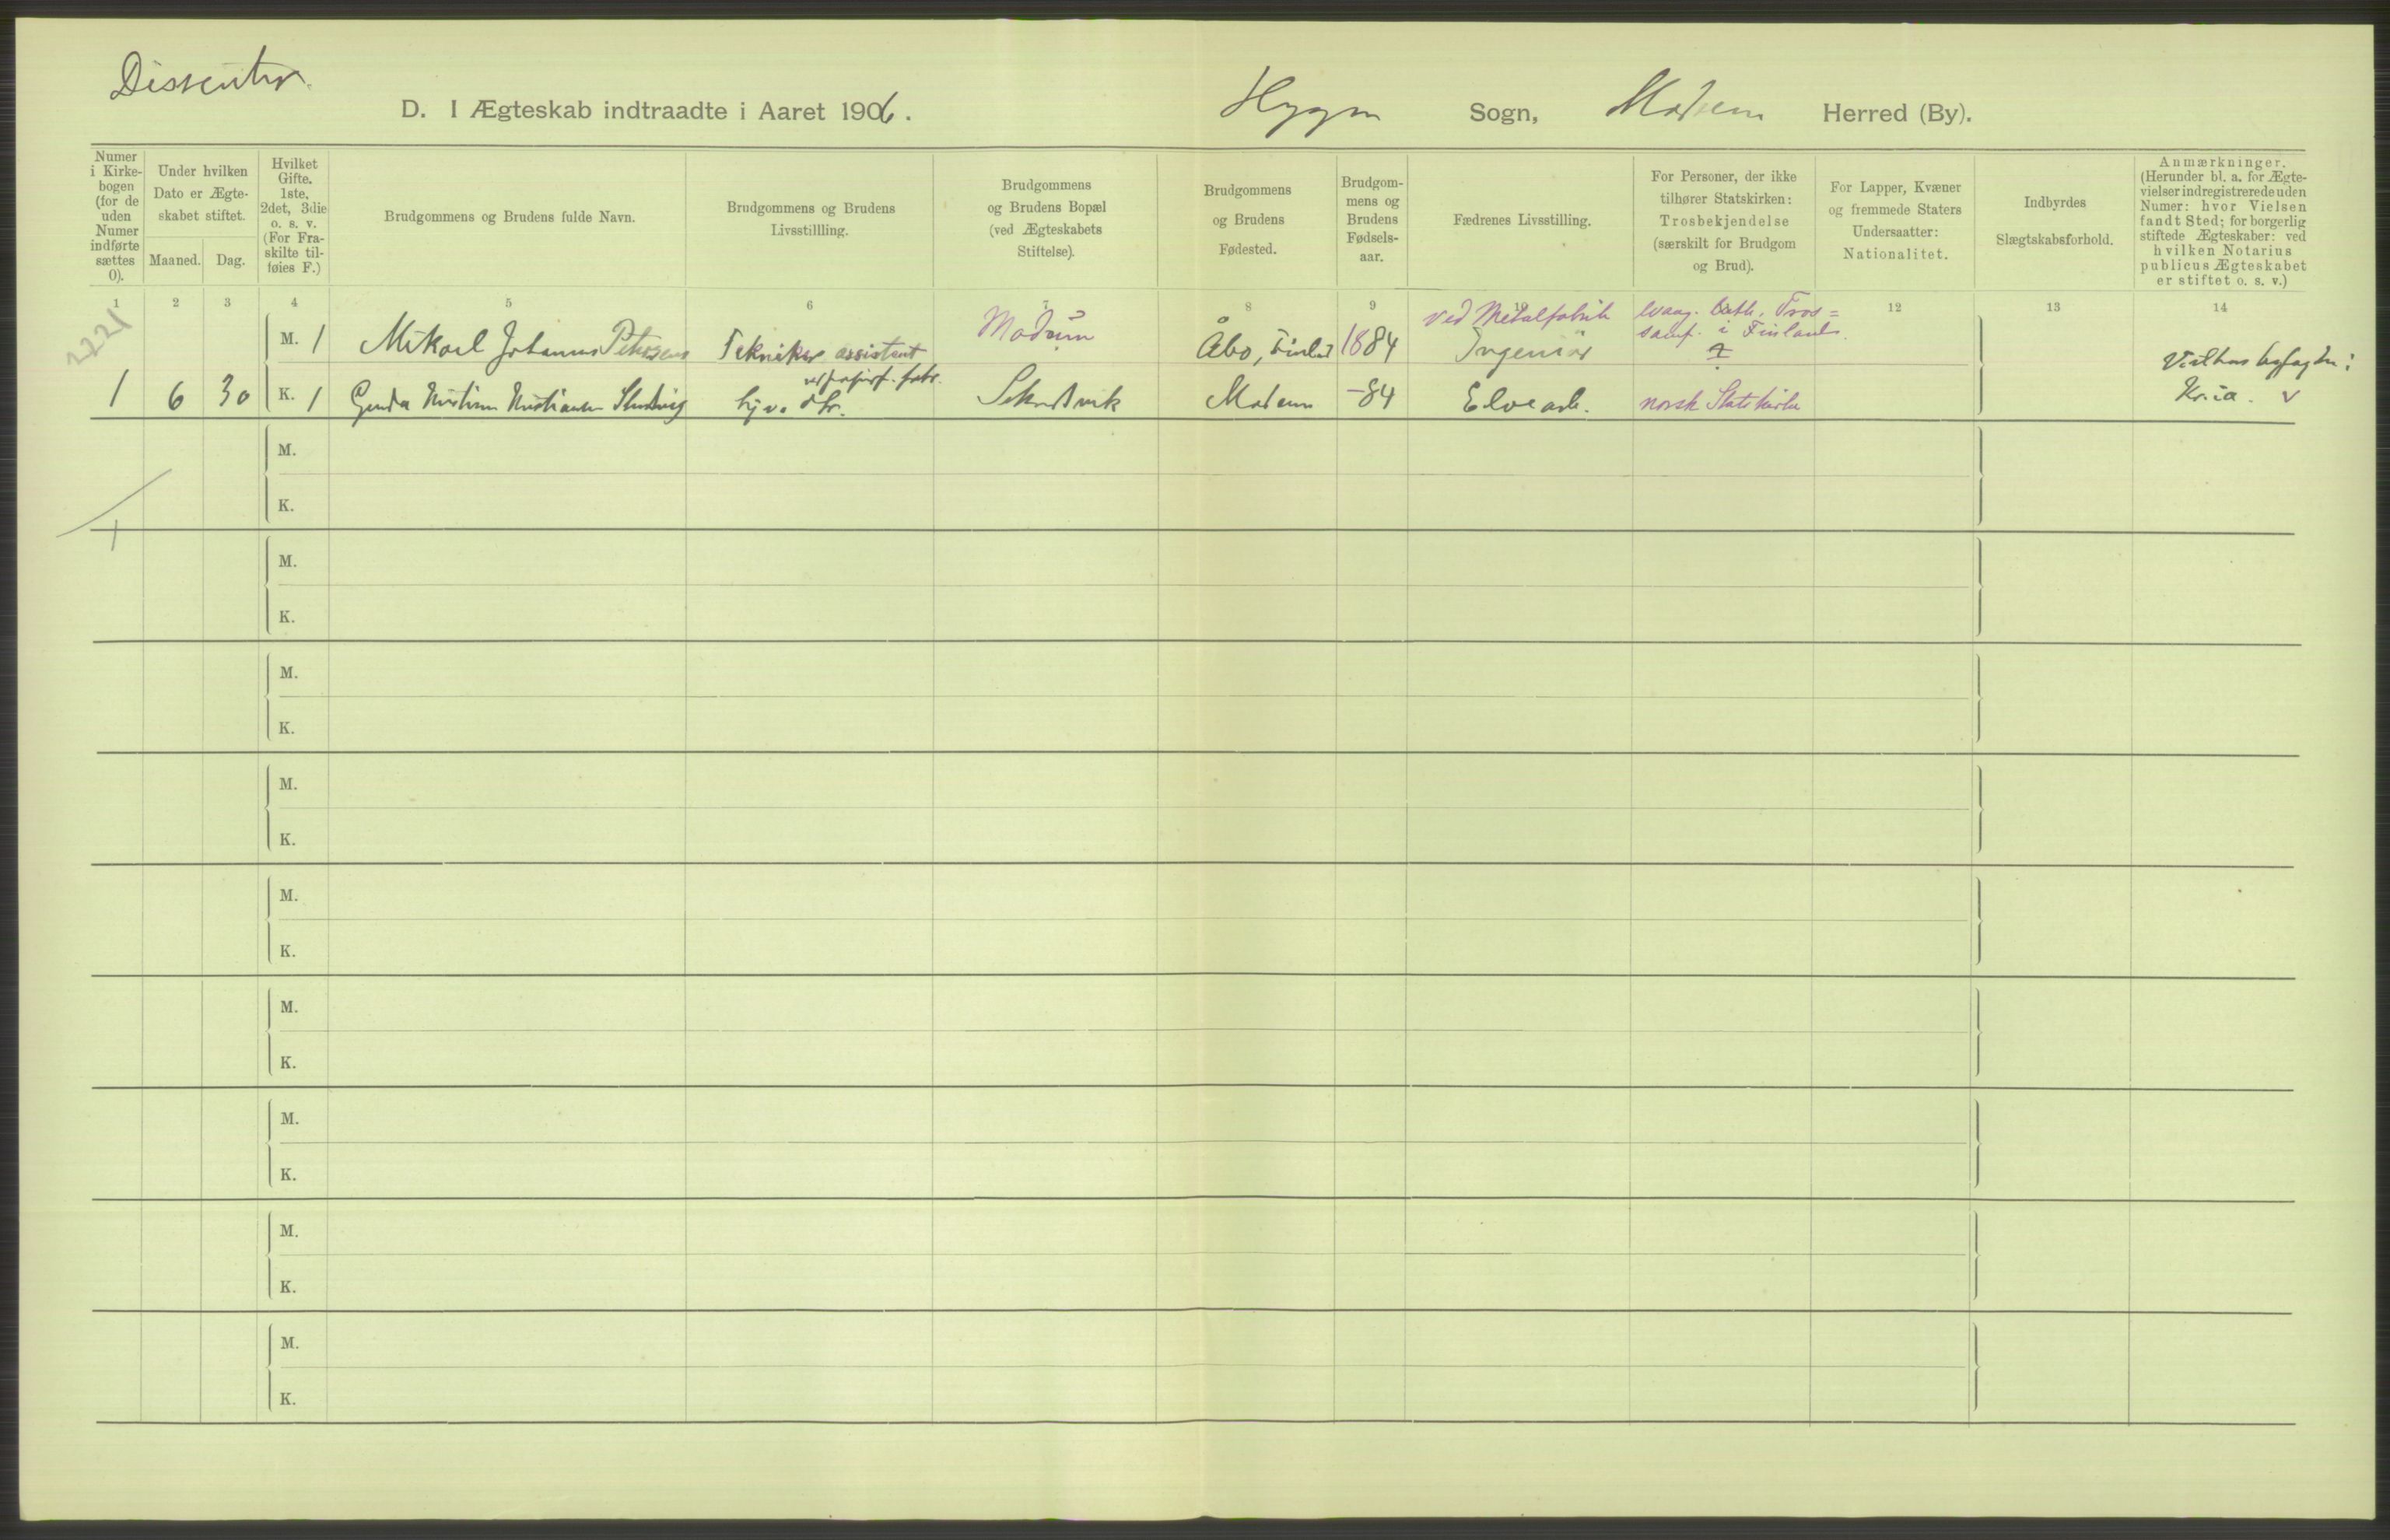 Dissenter.
D. I Ægteskab indtraadte i Aaret 1906. Sogn, Modum Herred (By).
Numer i Kirkebogen (for de uden Numer indførte sættes 0).
Under hvilken Dato er Ægteskabet stiftet.
Maaned. Dag.
Hvilket Gifte. 1ste, 2det, 3die o. s. v. (For Fraskilte tilføies F.)
Brudgommens og Brudens fulde Navn.
Brudgommens og Brudens Livsstillling.
Brudgommens og Brudens Bopæl (ved Ægteskabets Stiftelse).
Brudgommens og Brudens Fødested.
Brudgommens og Brudens Fødselsaar.
Fædrenes Livsstilling.
For Personer, der ikke tilhører Statskirken: Trosbekjendelse (særskilt for Brudgom og Brud).
For Lapper, Kvæner og fremmede Staters Undersaatter: Nationalitet.
Indbyrdes Slægtskabsforhold.
Anmærkninger. (Herunder bl. a. for Ægtevielser indregistrerede uden Numer: hvor Vielsen fandt Sted; for borgerlig stiftede Ægteskaber: ved hvilken Notarius publicus Ægteskabet er stiftet o. s. v.)
1 2 3 4 5 6 7 8 9 10 11 12 13 14
M. 1 Mikael Johannes Petersen Tekniker assistent Modum Åbo, Finland 1884 ved Metalfabrik Ingeniør evang. luth. Tros=
samf. i Finland.
1 6 30 K. 1 Kristiansen hj v. Modum -84 Elvearb. norsk Statskirke Kr.ia. v
M.
K.
M.
K.
M.
K.
M.
K.
M.
K.
M.
K.
M.
K.
M.
K.
M.
K.